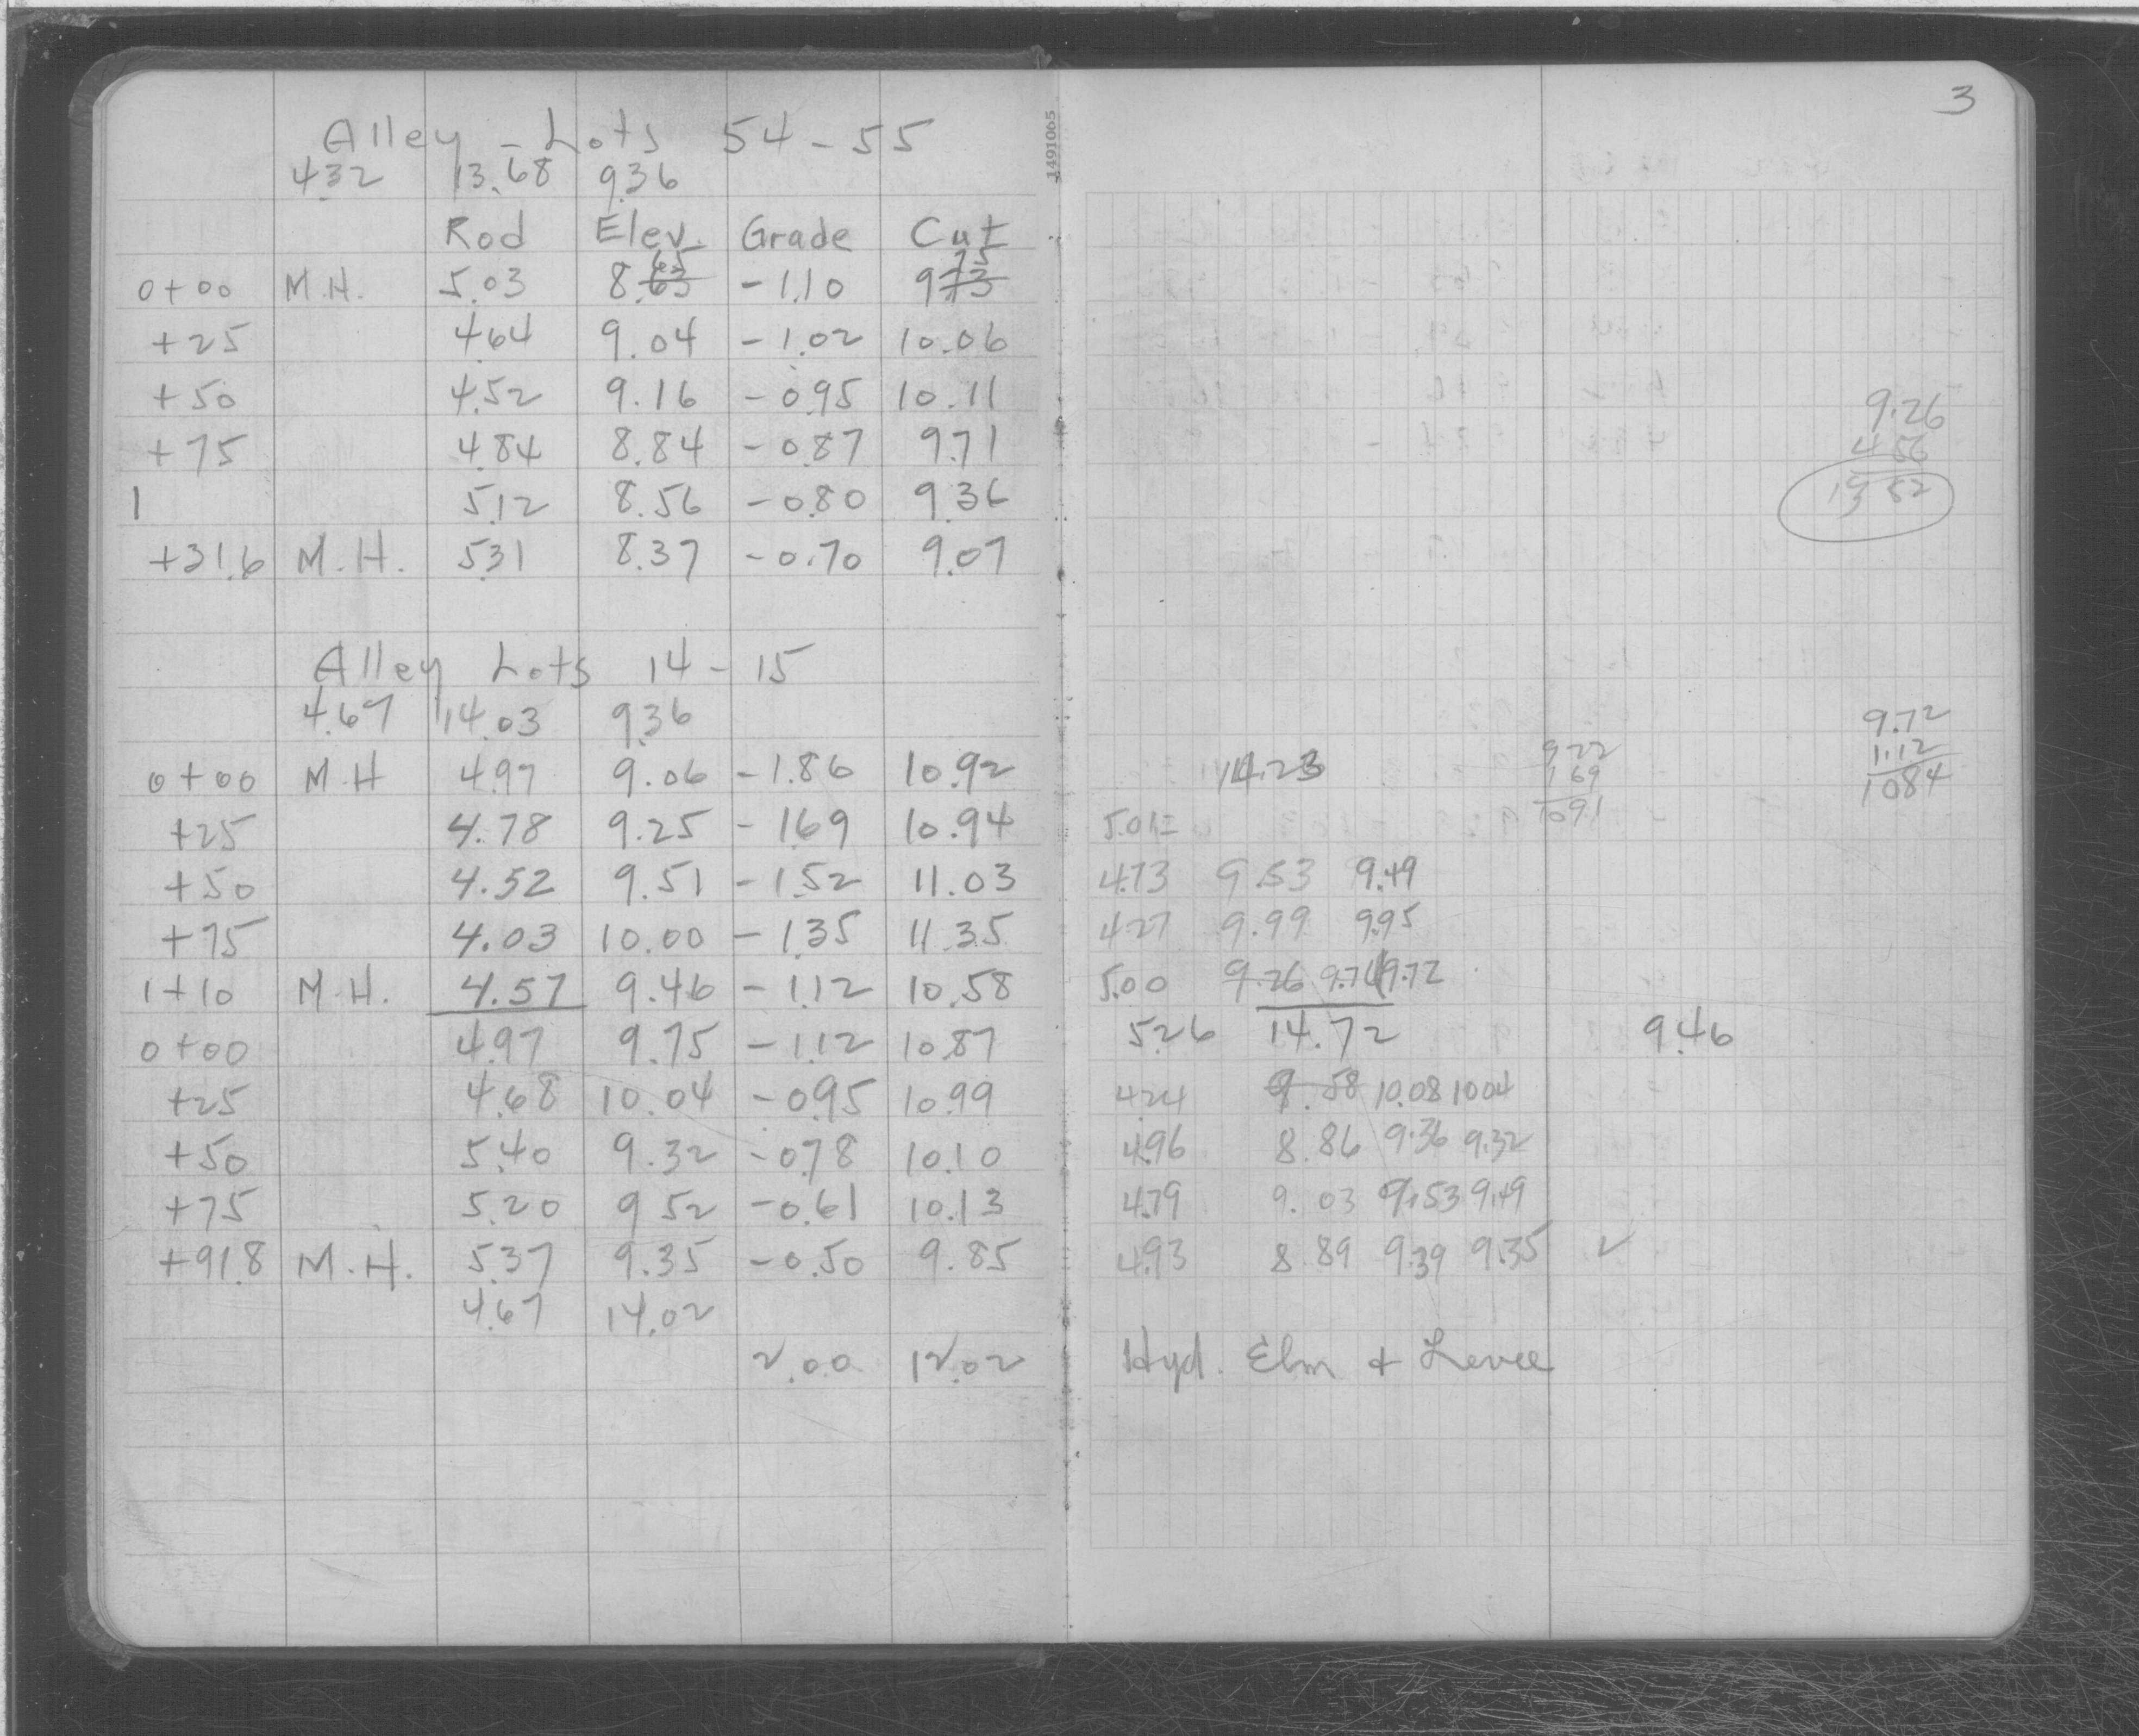 Alley - Lots 54-55
4.32 13.68 9.36
Rod Elev. Grade Cut
65 75
0+00 M.H. 5.03 8.63 -1.10 9.73
+25 4.64 9.04 -1.02 10.06
+50 4.52 9.16 -0.95 10.11
+75 4.84 8.84 -0.87 9.71
1 5.12 8.56 -0.80 9.36
+31.6 M.H. 5.31 8.37 -0.70 9.07
Alley Lots 14-15
4.67 14.03 9.36
0+00 M.H 4.97 9.06 -1.86 10.92
+25 4.78 9.25 -1.69 10.94
+50 4.52 9.51 -1.52 11.03
+75 4.03 10.00 -1.35 11.35
1+10 M.H. 4.57 9.46 -1.12 10.58
0+00 4.97 9.75 -1.12 10.87
+25 4.68 10.04 -0.95 10.99
+50 5.40 9.32 -0.78 10.10
+75 5.20 9.52 -0.61 10.13
+91.8 M.H. 5.37 9.35 -0.50 9.85
4.67 14.02
2.00 12.02
1491065
3
9.26
4.56
9.72
1.12
10.84
14.23
9.22
1.69
10.91
5.01
4.73 9.53 9.49
4.27 9.99 9.95
5.00 9.26 9.76 9.72
5.26 14.72 9.46
4.24 9.58 10.08 10.04
4.96 8.86 9.36 9.32
4.79 9.03 9.53 9.49
4.93 8.89 9.39 9.35 ✓
Hyd. Elm + Levee